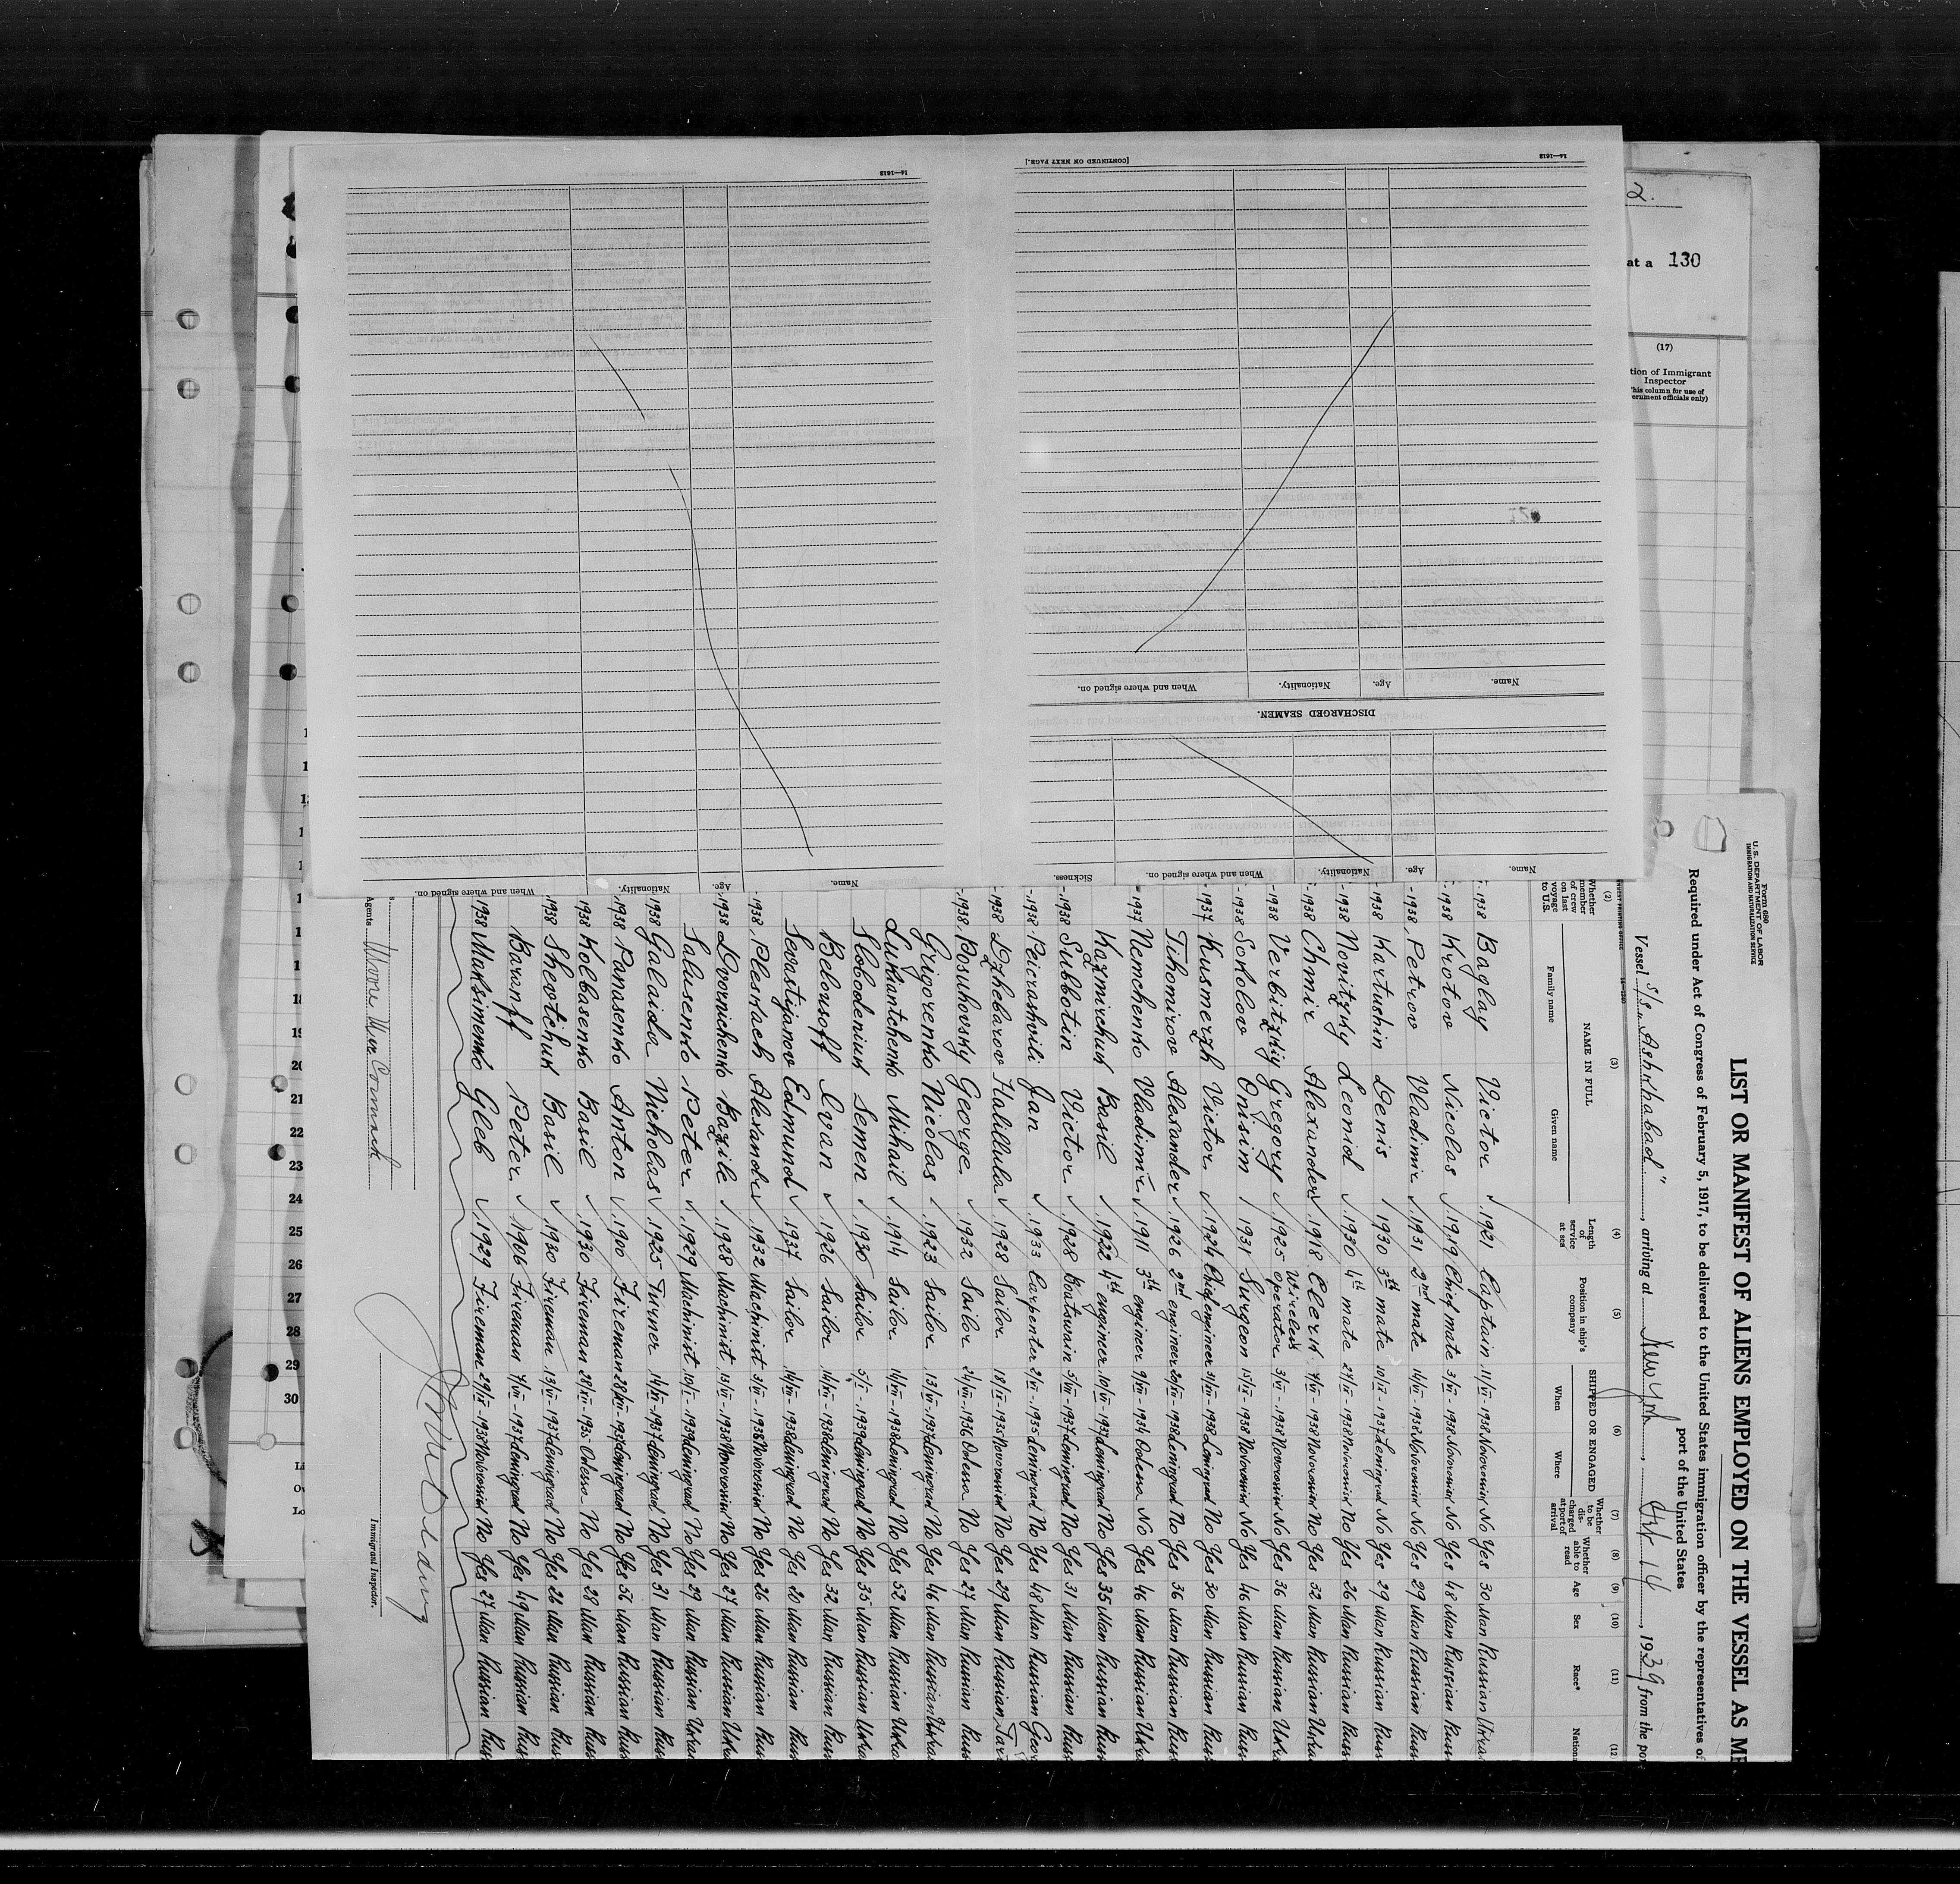 Form 680
U. S. DEPARTMENT OF LABOR
IMMIGRATION AND NATURALIZATION SERVICE
LIST OR MANIFEST OF ALIENS EMPLOYED ON THE VESSEL AS ME
Required under Act of Congress of February 5, 1917, to be delivered to the United States immigration officer by the representatives of
port of the United States
Vessel s/s "Ashkhabad", arriving at New York, 14, 1939 from the po
(2) (3) (4) (5) (6) (7) (8) (9) (10) (11) (12)
Whether member of crew on last voyage to U.S. NAME IN FULL Family name Given name Length of service at sea Position in ship's company SHIPPED OR ENGAGED When Where Whether to be discharged at port of arrival Whether able to read Age Sex Race* Nationa
1938 Baglay Victor 1921 Captain 11/VI-1938 Novorossisk No Yes 30 Man Russian Ukra
1938 Krotov Nicolas 1919 Chief mate 3/VI-1938 Novorossisk No Yes 48 Man Russian Russ
1938 Petrov Vladimir 1931 2nd mate 14/VI-1938 Novorossisk No Yes 29 Man Russian Russ
1938 Kartushin Denis 1930 3th mate 10/IX-1937 Leningrad No Yes 29 Man Russian Russ
1938 Novitzky Leonid 1930 4th mate 1938 Novorossisk No Yes 26 Man Russian Russ
1938 Chmir Alexander 1918 Clerk 7/VI-1938 Novorossisk No Yes 32 Man Russian Ukra
1938 Verbitzkiy Gregory 1925 Wireless operator 3/VI-1938 Novorossisk No Yes 36 Man Russian Ukra
1938 Sokolov Onisim 1931 Surgeon 15/VI-1938 Novorossisk No Yes 46 Man Russian Russ
1937 Kusmerzh Victor 1924 Chief engineer 31/VII-1938 Leningrad No Yes 30 Man Russian Russ
Tihomirov Alexander 1926 2nd engineer 1938 Leningrad No Yes 36 Man Russian Russ
1937 Nemchenko Vladimir 1911 3th engineer 9/VII-1934 Odessa No Yes 46 Man Russian Ukra
Kazmirchuk Basil 1922 4th engineer 10/VI-1937 Leningrad No Yes 35 Man Russian Russ
1938 Subbotin Victor 1928 Boatswain 5/VII-1937 Leningrad No Yes 31 Man Russian Russ
1938 Peicrashvili Jan 1933 Carpenter 2/VI-1935 Leningrad No Yes 48 Man Russian Geor
1938 Dzhebarov Halillula 1928 Sailor 18/VI-1935 Novorossisk No Yes 29 Man Russian Tar
1938 Posuhovsky George 1932 Sailor 1936 Odessa No Yes 27 Man Russian Russ
Grigorenko Nicolas 1923 Sailor 13/VI-1937 Leningrad No Yes 46 Man Russian Ukra
Lukiantchenko Mihail 1914 Sailor 14/VII-1938 Leningrad No Yes 52 Man Russian Ukra
Slobodeniuk Semen 1936 Sailor 5/I-1939 Leningrad No Yes 35 Man Russian Ukra
Belousoff Ivan 1926 Sailor 14/VII-1938 Leningrad No Yes 32 Man Russian Russ
Sevastijanov Edmund 1937 Sailor 14/VII-1938 Leningrad No Yes 20 Man Russian Russ
1938 Pleskach Alexandr 1932 Machinist 3/VI-1938 Novorossisk No Yes 26 Man Russian Russ
1938 Dvornichenko Bazile 1928 Machinist 13/VI-1938 Novorossisk No Yes 27 Man Russian Ukra
Salusenko Peter 1929 Machinist 10/I-1939 Leningrad No Yes 29 Man Russian Ukra
1938 Galaida Nicholas 1925 Turner 14/VI-1937 Leningrad No Yes 31 Man Russian Russ
1938 Panasenko Anton 1900 Fireman 1937 Leningrad No Yes 56 Man Russian Russ
1938 Kolbasenko Basil 1930 Fireman 1935 Odessa No Yes 28 Man Russian Russ
1938 Shevtchuk Basil 1930 Fireman 13/VI-1937 Leningrad No Yes 26 Man Russian Russ
Baranff Peter 1906 Fireman 7/VII-1937 Leningrad No Yes 49 Man Russian Russ
1938 Maksimenko Gleb 1929 Fireman 1938 Novorossisk No Yes 27 Man Russian Russ
Agents Moore McCormack
Immigrant Inspector.
[CONTINUED ON NEXT PAGE.]
14—1612
14—1612
Name. Age. Nationality. When and where signed on.
DISCHARGED SEAMEN.
Name. Age. Nationality. When and where signed on. Sickness.
Name. Age. Nationality. When and where signed on.
2.
at a 130
(17)
tion of Immigrant
Inspector
his column for use of
ernment officials only)
18
19
20
21
22
23
24
25
26
27
28
29
30
Li
Ow
Lo